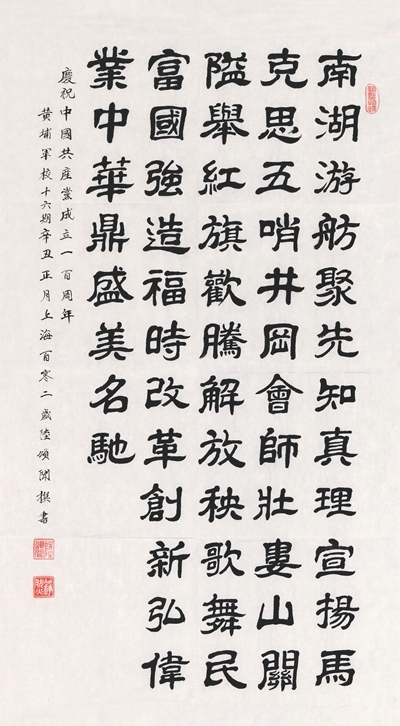 南湖游舫聚先知真理宣揚馬
克思五哨井岡會師壯婁山關
隘舉紅旗歡騰解放秧歌舞民
富國強造福時改革創新弘偉
業中華鼎盛美名馳
慶祝中國共產黨成立一百周年
黄埔軍校十六期辛丑正月上海百零二歲陸頌開撰書